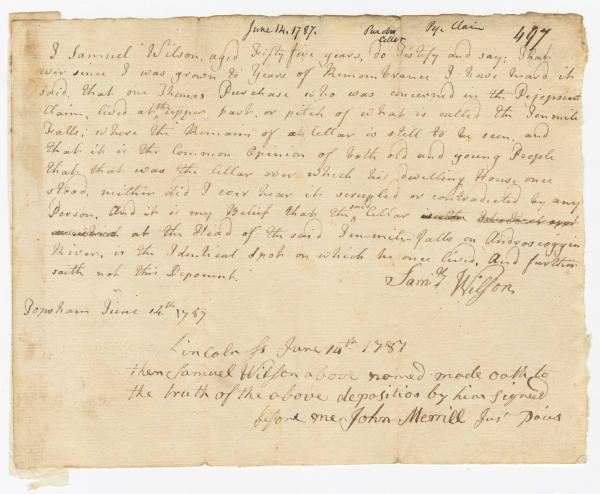 June 14. 1787. Purchas Cellar Pejs. Claim 497
I Samuel Wilson, aged Fifty five years, do Testify and say: That
ever since I was grown to Years of Remembrance I have heard it
said, that one Thomas Purchase who was concerned in the Pejepscot
Claim, lived at the upper part, or pitch of what is called the Tenmile
Falls; where the Remains of a Cellar is still to be seen, and
that it is the Common Opinion of both old and young People
that that was the Cellar over which his dwelling House once
stood, neither did I ever hear it scrupled or contradicted by any
Person. And it is my Belief that the said Cellar
at the Head of the said Tenmile-Falls on Androscoggin
River, is the Identical Spot on which he once lived, And further
saith not this Deponent.
Saml. Wilson
Topsham June 14th 1787
Lincoln Ss June 14th 1787
then Samuel Wilson above named made oath to
the truth of the above deposition by him signed
before me John Merrill Jus Pacis